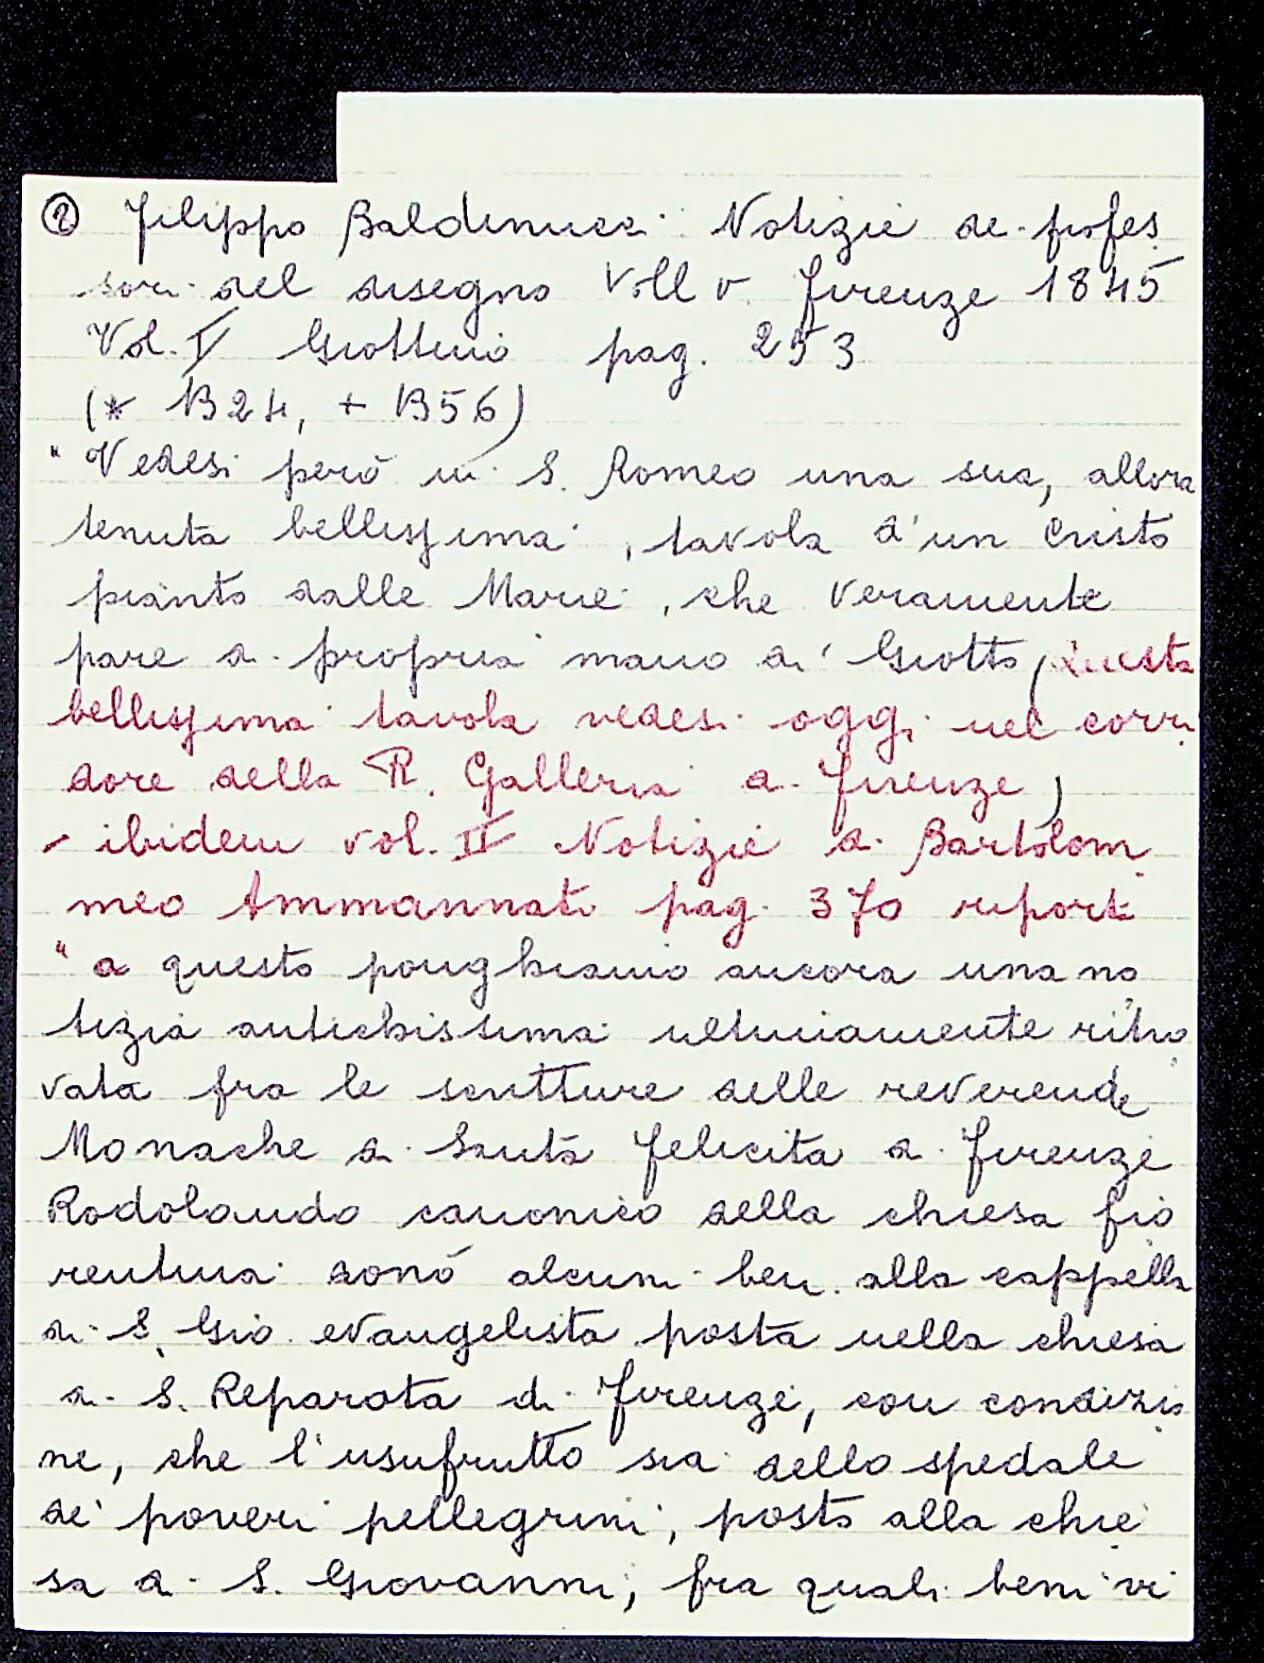 ② Filippo Baldinucci Notizie de profes
sori del disegno Voll V Firenze 1845
Vol. I Giottino pag. 253
(* B24, + B56)
"Vedesi però in S. Romeo una sua, allora
tenuta bellissima, tavola d'un Cristo
pianto dalle Marie, che veramente
pare di propria mano di Giotto (questa
bellissima tavola vedesi oggi nel corri
dore della R. Galleria di Firenze)
- ibidem vol. II Notizie di Bartolom
meo Ammannati pag. 370 riporti
"a questo ponghiamo ancora una no
tizia antichissima ultimamente ritro
vata fra le scritture delle reverende
Monache di Santa Felicita di Firenze
Rodolando canonico della chiesa fio
rentina donò alcuni beni alla cappella
di S. Gio. evangelista posta nella chiesa
di S. Reparata di Firenze, con condizio
ne, che l'usufrutto sia dello spedale
de' poveri pellegrini, posto alla chie
sa di S. Giovanni, fra quali beni vi